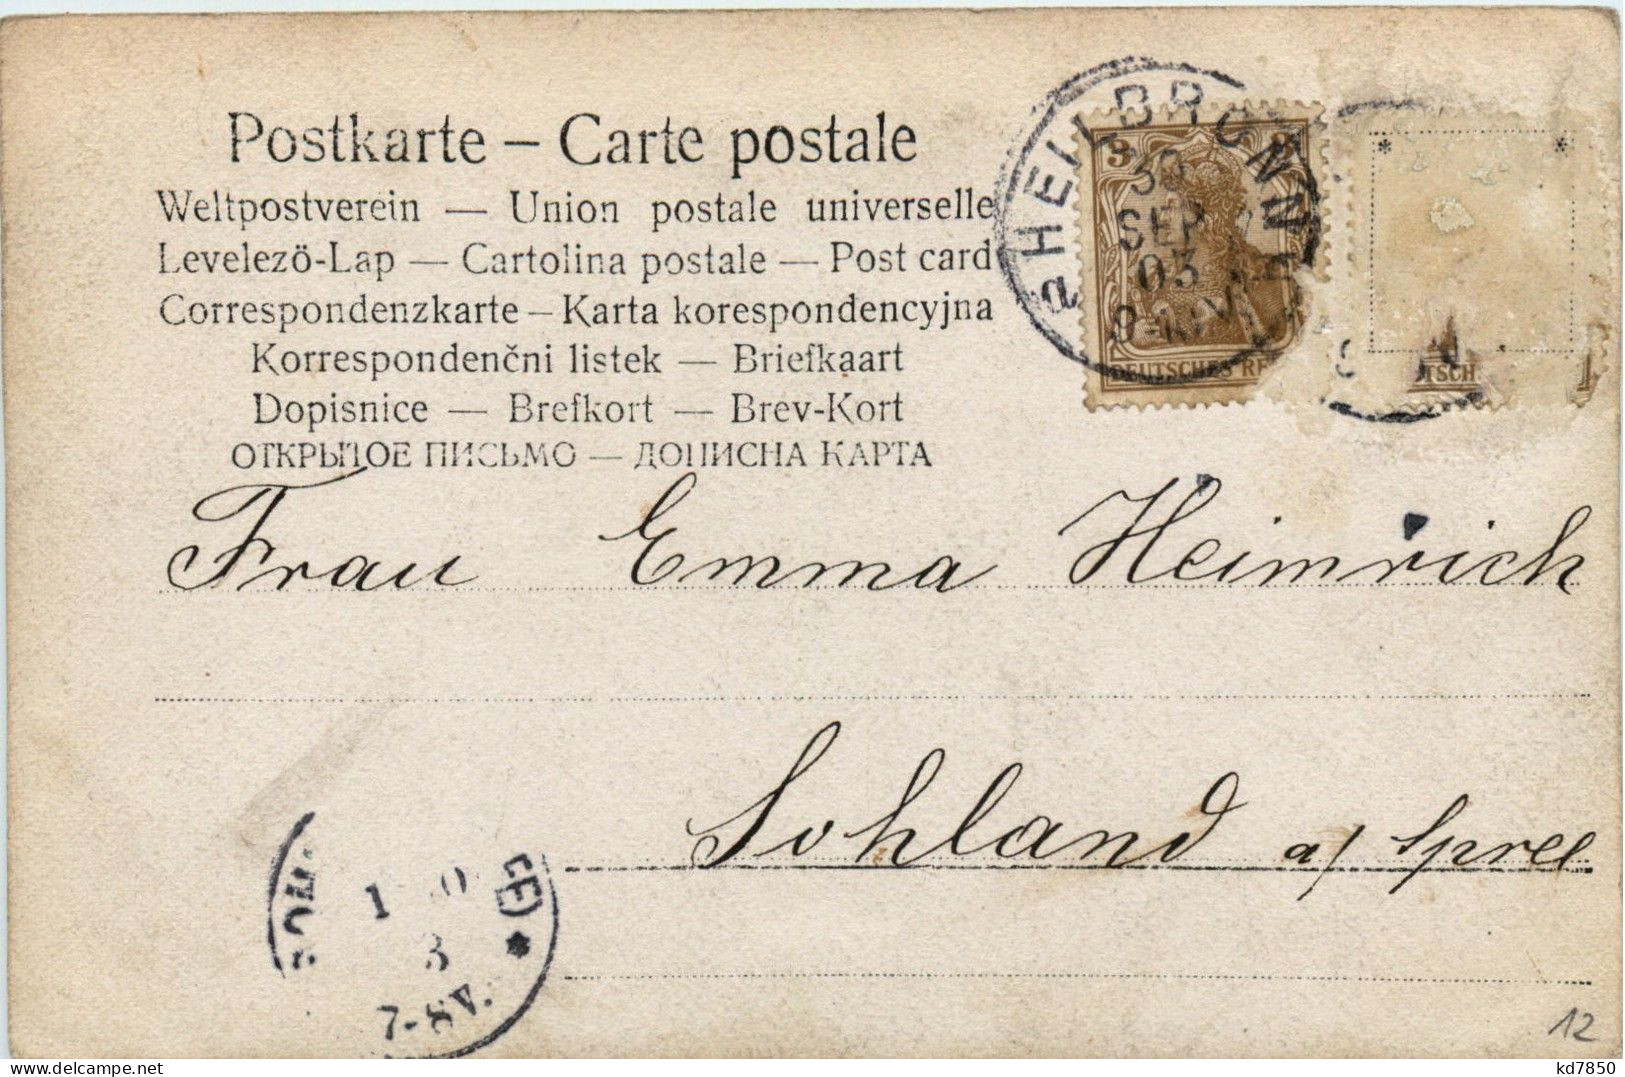 Postkarte – Carte postale
Weltpostverein — Union postale universelle
Levelezö-Lap — Cartolina postale — Post card
Correspondenzkarte – Karta korespondencyjna
Korrespondenčni listek — Briefkaart
Dopisnice — Brefkort — Brev-Kort
ОТКРЫТОЕ ПИСЬМО — ДОПИСНА КАРТА
HEILBRONN
3 3
30
SEP
03
DEUTSCHES RE
TSCH
Frau Emma Heimrich
Sohland a/ Spree
SOHL
EE)
1 10
3
7-8V.
12
kd7850